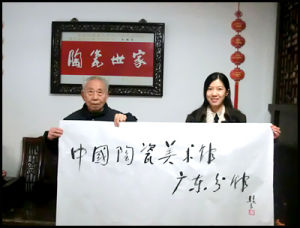 陶瓷世家
中國陶瓷美术馆
广东分馆